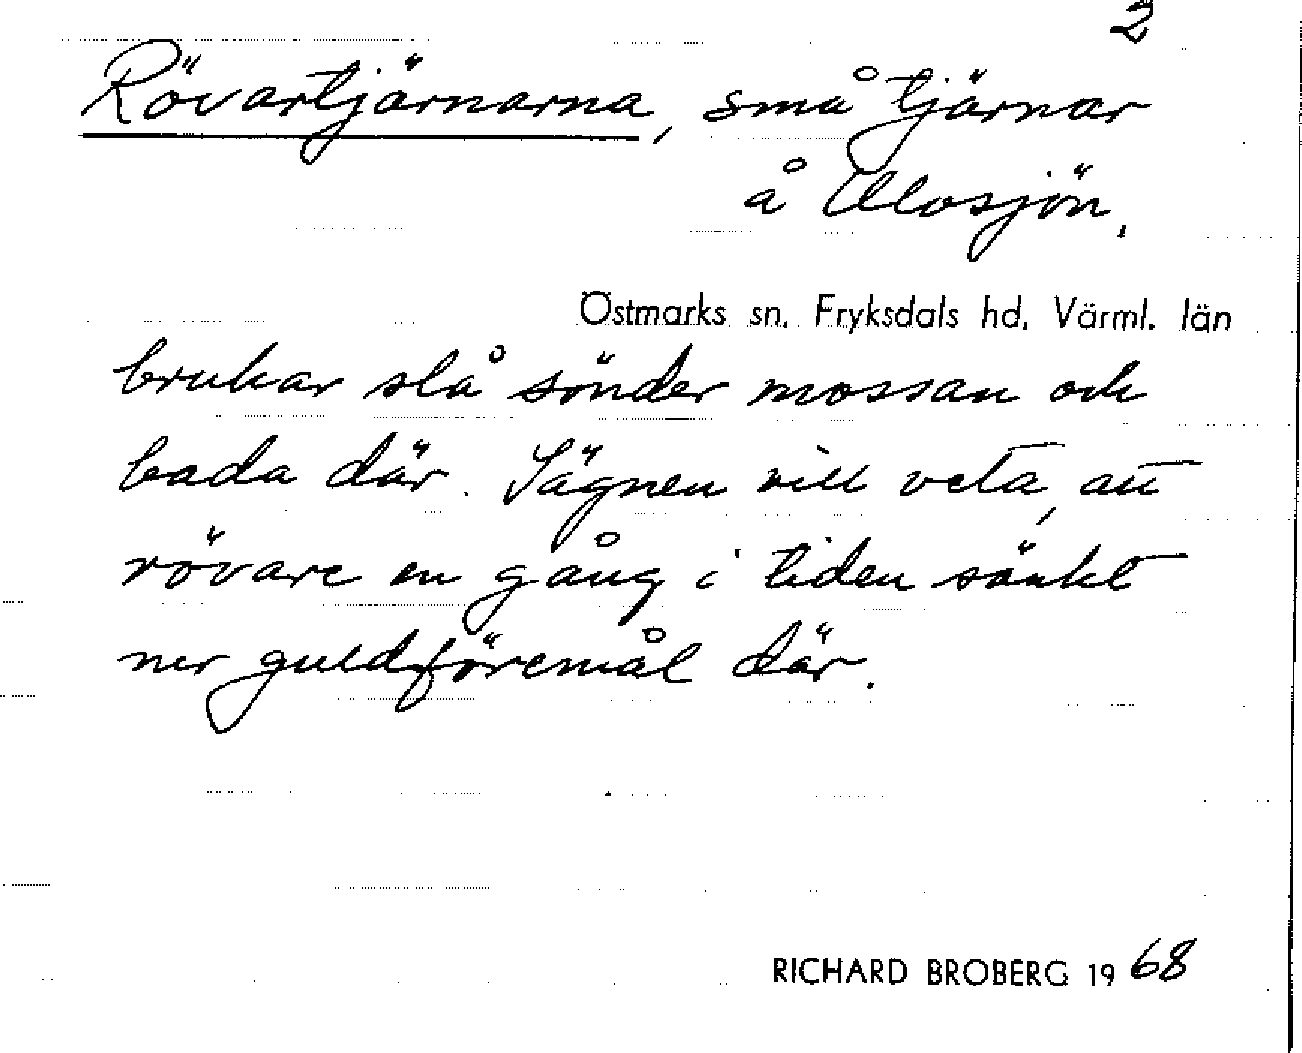 2
Rövartjärnarna, små tjärnar
å Ulvsjön.
Östmarks sn, Fryksdals hd, Värml. län
brukar slå sönder mossan och
bada där. Sägnen vill veta, att
rövare en gång i tiden sänkt
ner guldföremål där.
RICHARD BROBERG 1968